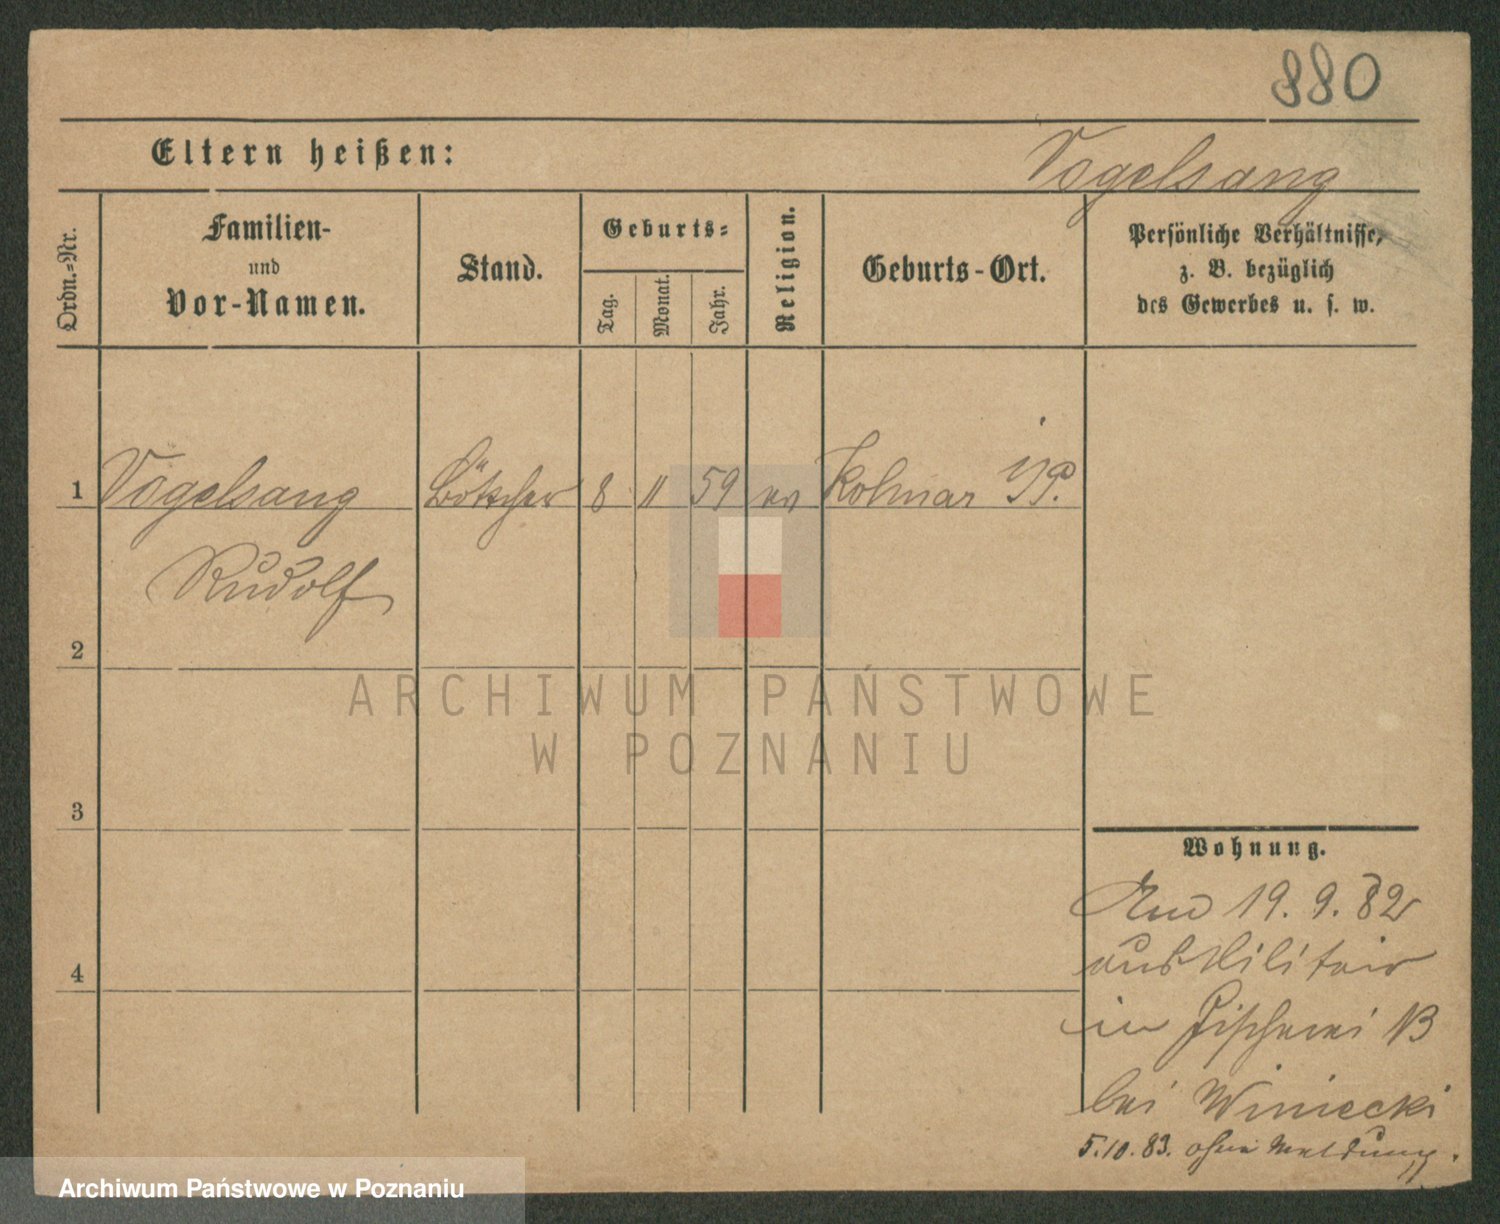 880
Eltern heißen:
Vogelsang
Ordn.=Nr.
Familien-
und
Vor-Namen.
Stand.
Geburts=
Tag.
Monat.
Jahr.
Religion.
Geburts-Ort.
Persönliche Verhältnisse,
z. B. bezüglich
des Gewerbes u. s. w.
1 Vogelsang Böttcher 8 11 59 ev Kolmar i/P.
Rudolf
2
3
4
ARCHIWUM PAŃSTWOWE
W POZNANIU
Wohnung.
19. 9. 82
aus Militair
in Fischerei 13
bei Winiecki
5.10.83. ohne Meldung.
Archiwum Państwowe w Poznaniu